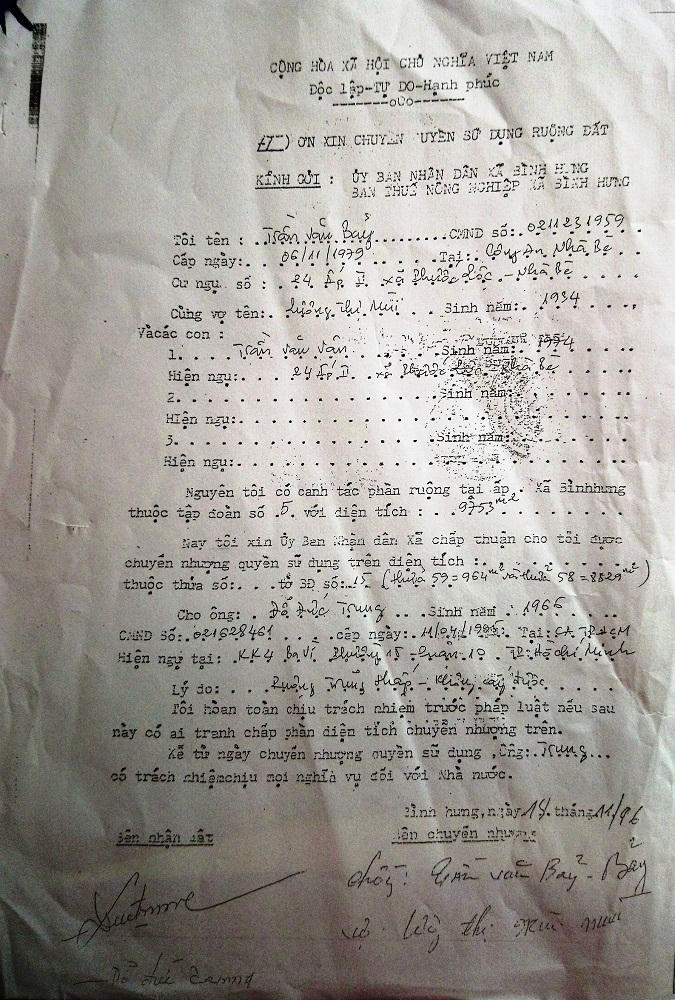 CỘNG HÒA XÃ HỘI CHỦ NGHĨA VIỆT NAM
Độc lập-TỰ DO-Hạnh phúc
-------oOo------
ĐƠN XIN CHUYỂN QUYỀN SỬ DỤNG RUỘNG ĐẤT
KÍNH GỬI : ỦY BAN NHÂN DÂN XÃ BÌNH HƯNG
BAN THUẾ NÔNG NGHIỆP XÃ BÌNH HƯNG
Tôi tên : Trần Văn Bảy CMND số: 0211231959
Cấp ngày: 06/11/1979 Tại: Công An Nhà Bè
Cư ngụ số : 24 Ấp II xã Phước Lộc - Nhà Bè
Cùng vợ tên: Thị Mùi Sinh năm: 1934
Và các con :
1. Trần Văn Vân Sinh năm:
Hiện ngụ: 24 Ấp II xã Phước Lộc Nhà Bè
2. Sinh năm:
Hiện ngụ:
3. Sinh năm:
Hiện ngụ:
Nguyên tôi có canh tác phần ruộng tại ấp . Xã Bình hưng
thuộc tập đoàn số 5 với diện tích : 9753 m2
Nay tôi xin Ủy Ban Nhận dân Xã chấp thuận cho tôi được
chuyển nhượng quyền sử dụng trên diện tích :
thuộc thửa số: tờ BĐ số: 15 (thửa 59=964 m2 và thửa 58=8829 m2)
Cho ông: Đỗ Đức Trung Sinh năm : 1966
CMND Số: 021628461 cấp ngày: Tại: CA TP HCM
Hiện ngụ tại: KK4 Ba Vì Phường 15 - Quận 10 TP. Hồ Chí Minh
Lý do: Ruộng Trũng thấp - Không cấy được
Tôi hoàn toàn chịu trách nhiệm trước pháp luật nếu sau
này có ai tranh chấp phần diện tích chuyển nhượng trên.
Kể từ ngày chuyển nhượng quyền sử dụng ,Ông: Trung
có trách nhiệm chịu mọi nghĩa vụ đối với Nhà nước.
Bình hưng, ngày 18 tháng 11/96
Bên nhận đất Bên chuyển nhượng
chồng: Trần văn Bảy - Bảy
vợ thị
Đỗ đức Trung